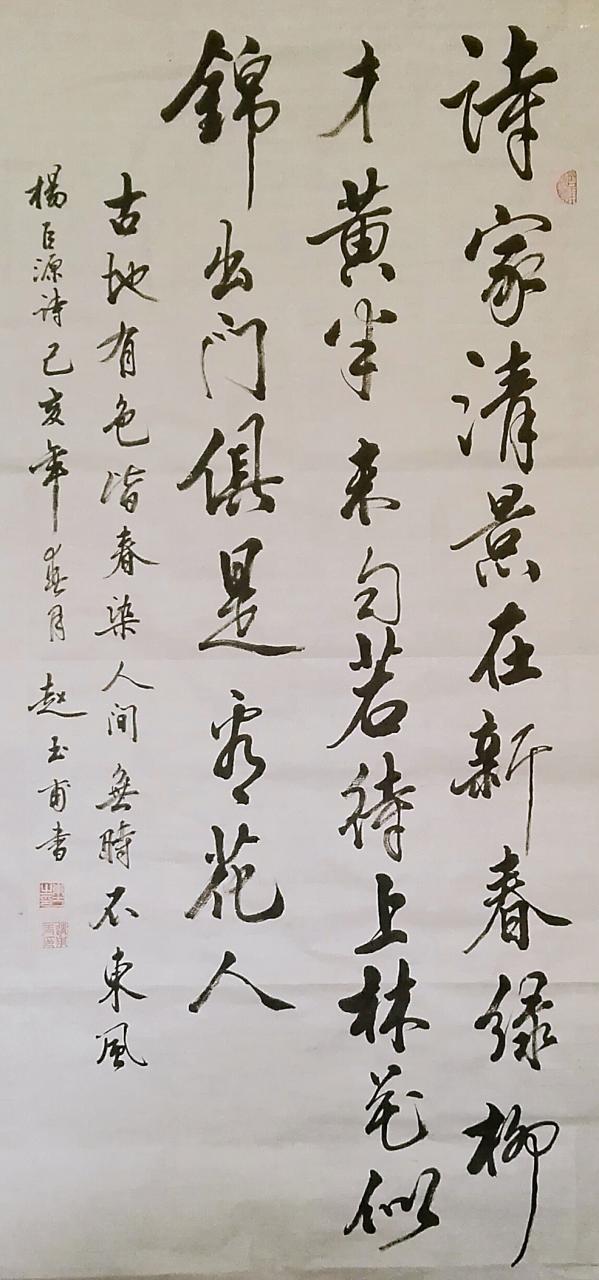 詩家清景在新春绿柳
才黄半未匀若待上林花似
錦出门俱是看花人
古地有色皆春染人间無時不東風
楊巨源詩己亥年 月赵玉甫书